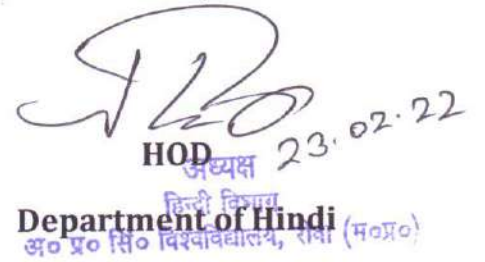 23.02.22
HOD
अध्यक्ष
हिन्दी विभाग
Department of Hindi
अ० प्र० सिं० विश्वविद्यालय, रीवा (म०प्र०)